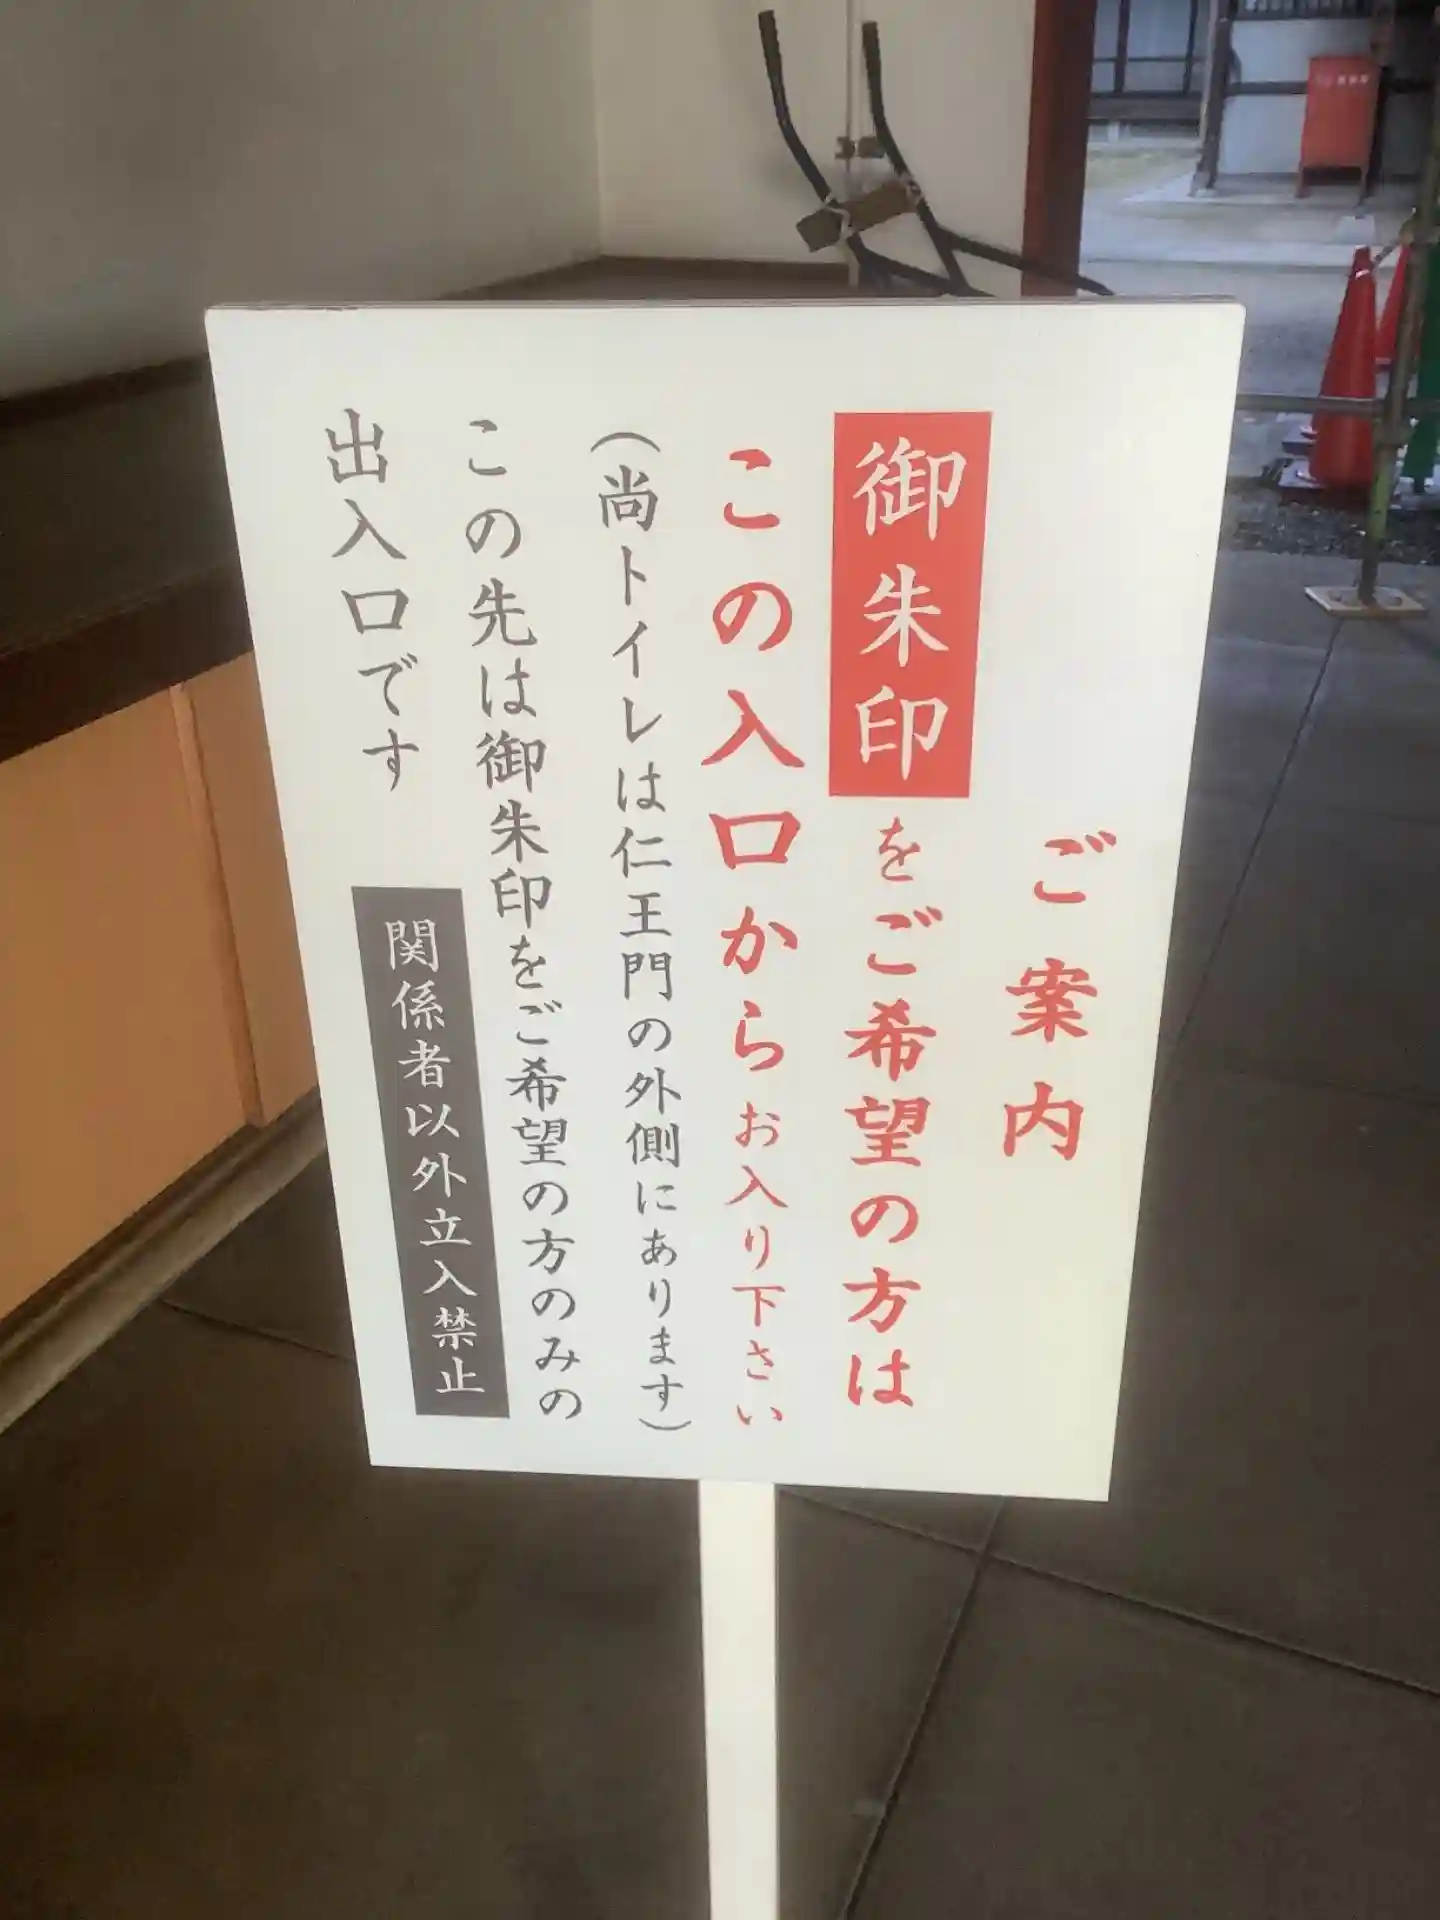 ご案内
御朱印をご希望の方は
この入口からお入り下さい
（尚トイレは仁王門の外側にあります）
この先は御朱印をご希望の方のみの
出入口です
関係者以外立入禁止